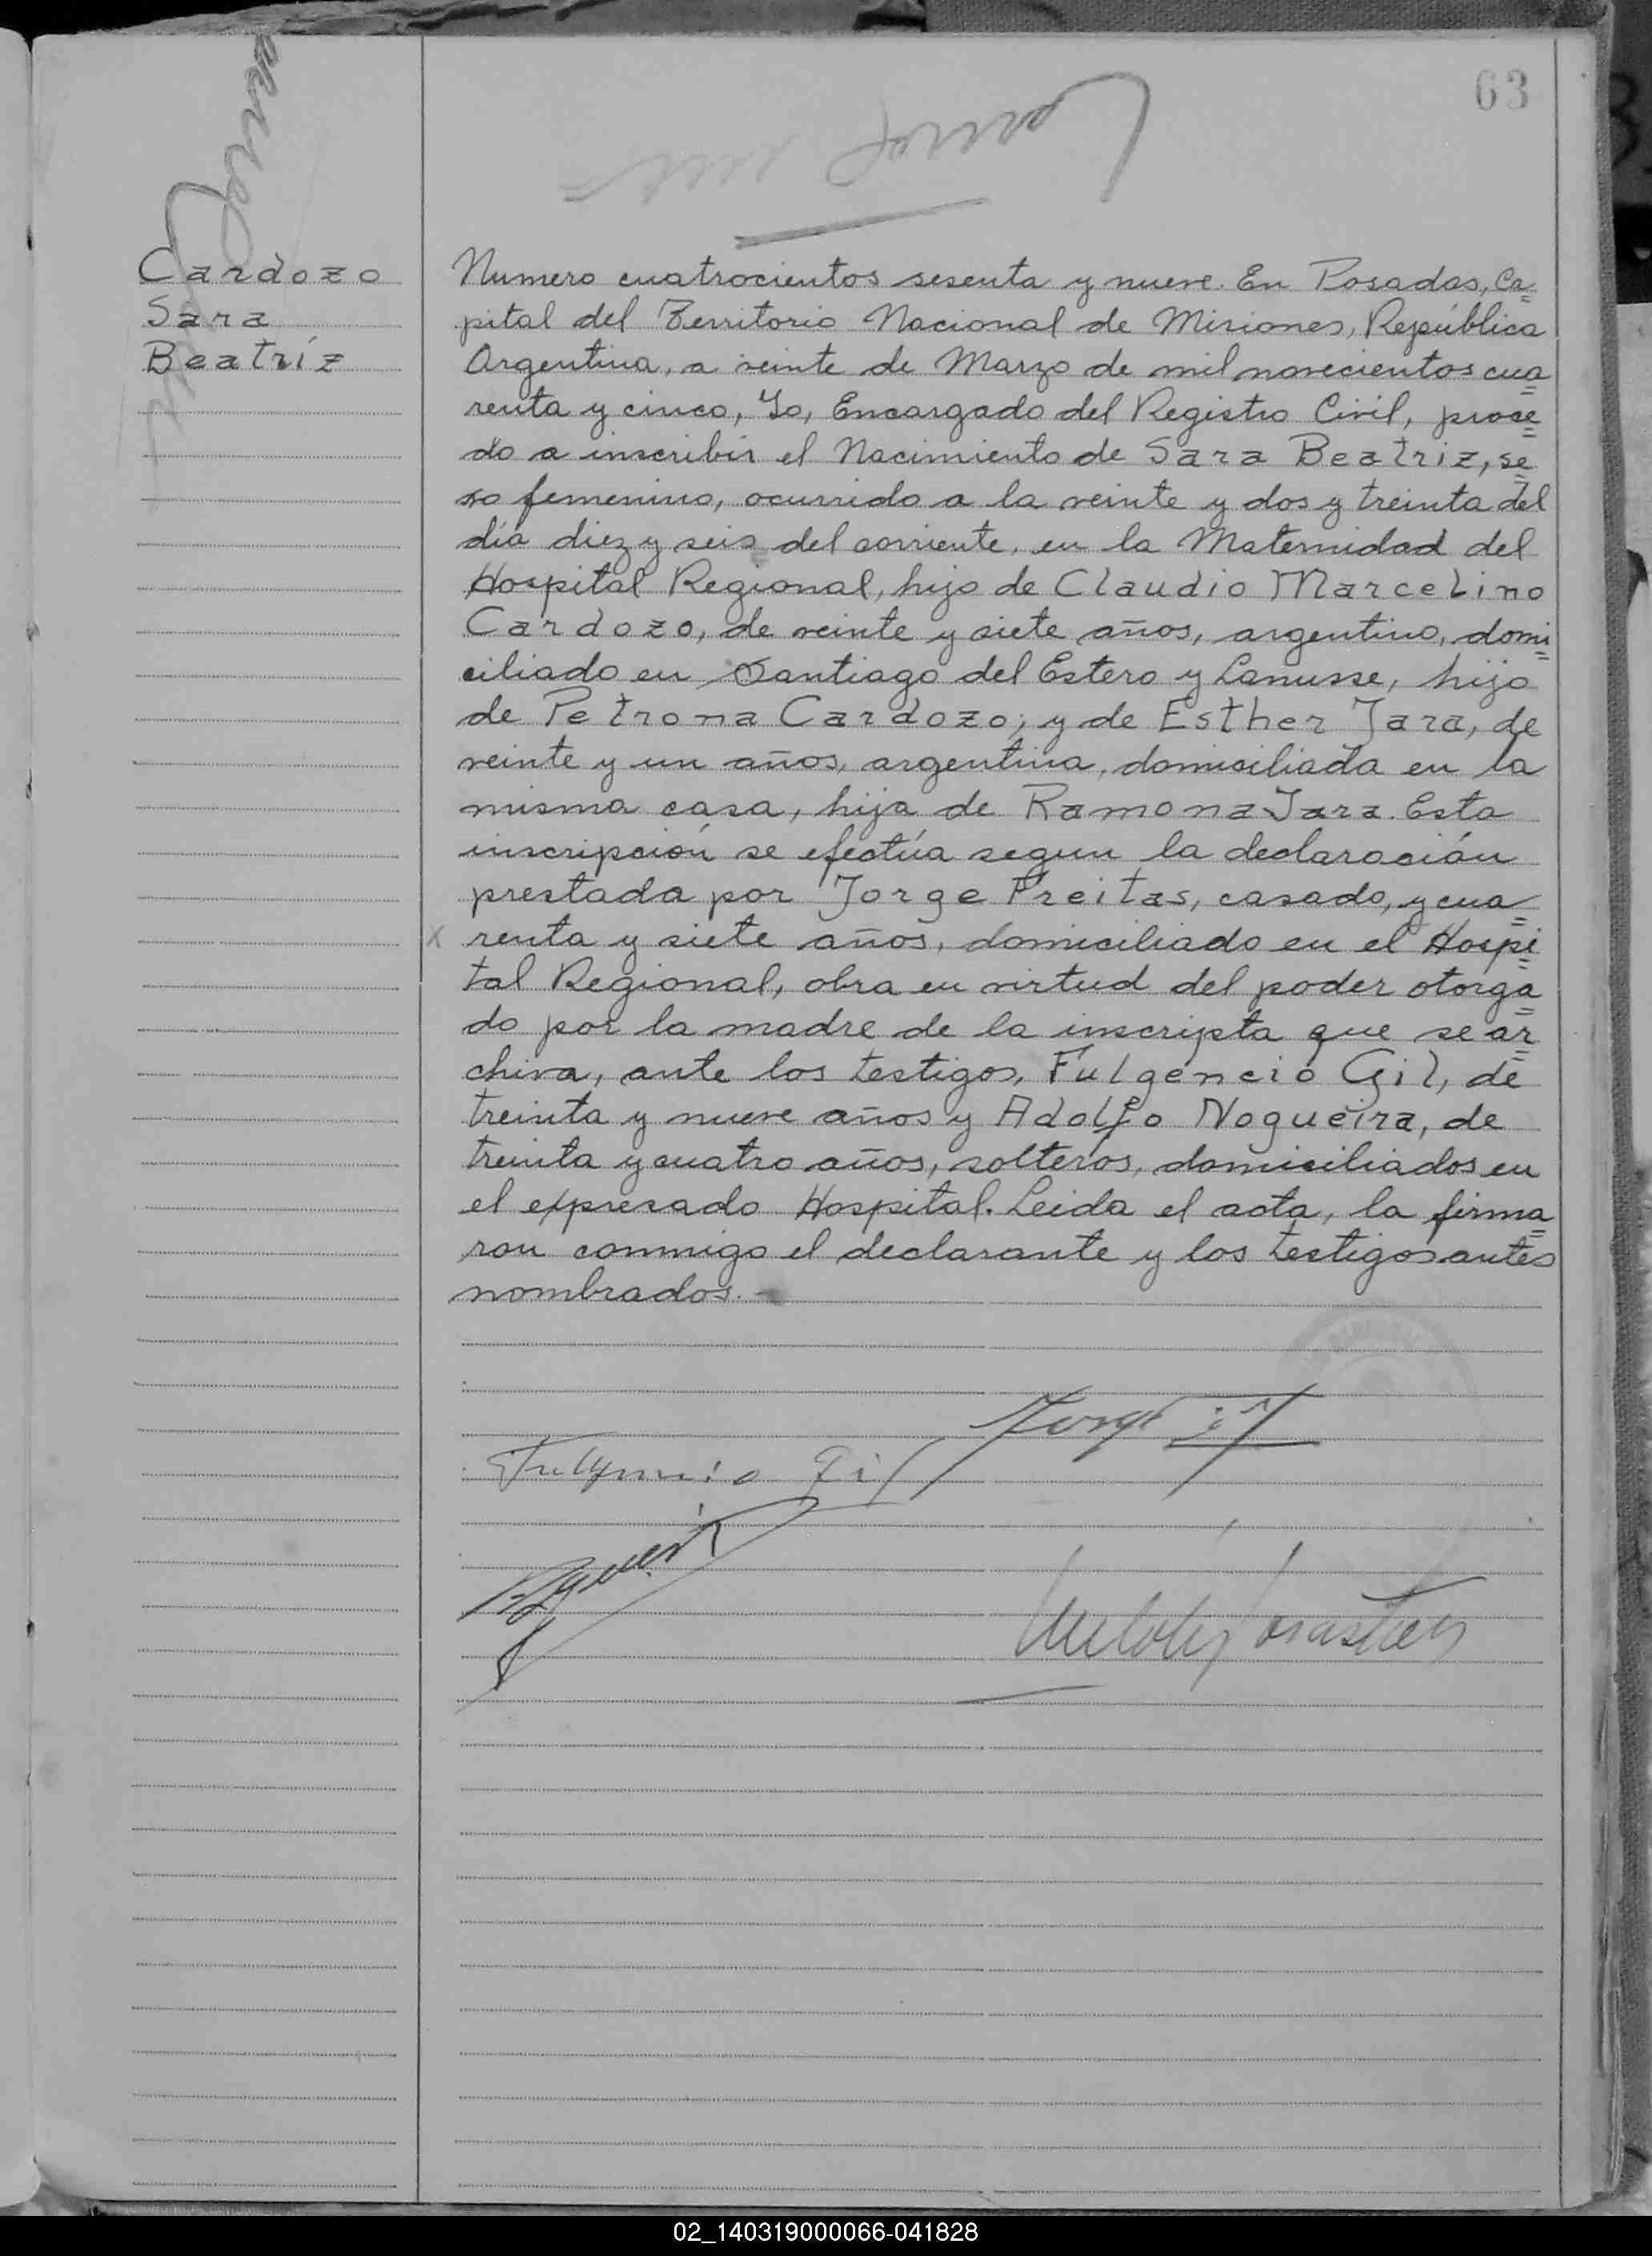 63
Cardozo
Sara
Beatríz
Numero cuatrocientos sesenta y nueve. En Posadas, Ca=
pital del Territorio Nacional de Misiones, República
Argentina, a veinte de Marzo de mil novecientos cua=
renta y cinco, Yo, Encargado del Registro Civil, proce=
do a inscribir el Nacimiento de Sara Beatriz, se=
xo femenino, ocurrido a la veinte y dos y treinta del
día diez y seis del corriente, en la Maternidad del
Hospital Regional, hijo de Claudio Marcelino
Cardozo, de veinte y siete años, argentino, domi=
ciliado en Santiago del Estero y Lanusse, hijo
de Petrona Cardozo; y de Esther Jara, de
veinte y un años, argentina, domiciliada en la
misma casa, hija de Ramona Jara. Esta
inscripción se efectúa segun la declaración
prestada por Jorge Freitas, casado, y cua=
x renta y siete años, domiciliado en el Hospi=
tal Regional, obra en virtud del poder otorga=
do por la madre de la inscripta que se ar=
chiva, ante los testigos, Fulgencio Gil, de
treinta y nueve años y Adolfo Nogueira, de
treinta y cuatro años, solteros, domiciliados en
el expresado Hospital. Leida el acta, la firma=
ron conmigo el declarante y los testigos antes
nombrados.
Jorge
Fulgencio Gil
02_140319000066-041828